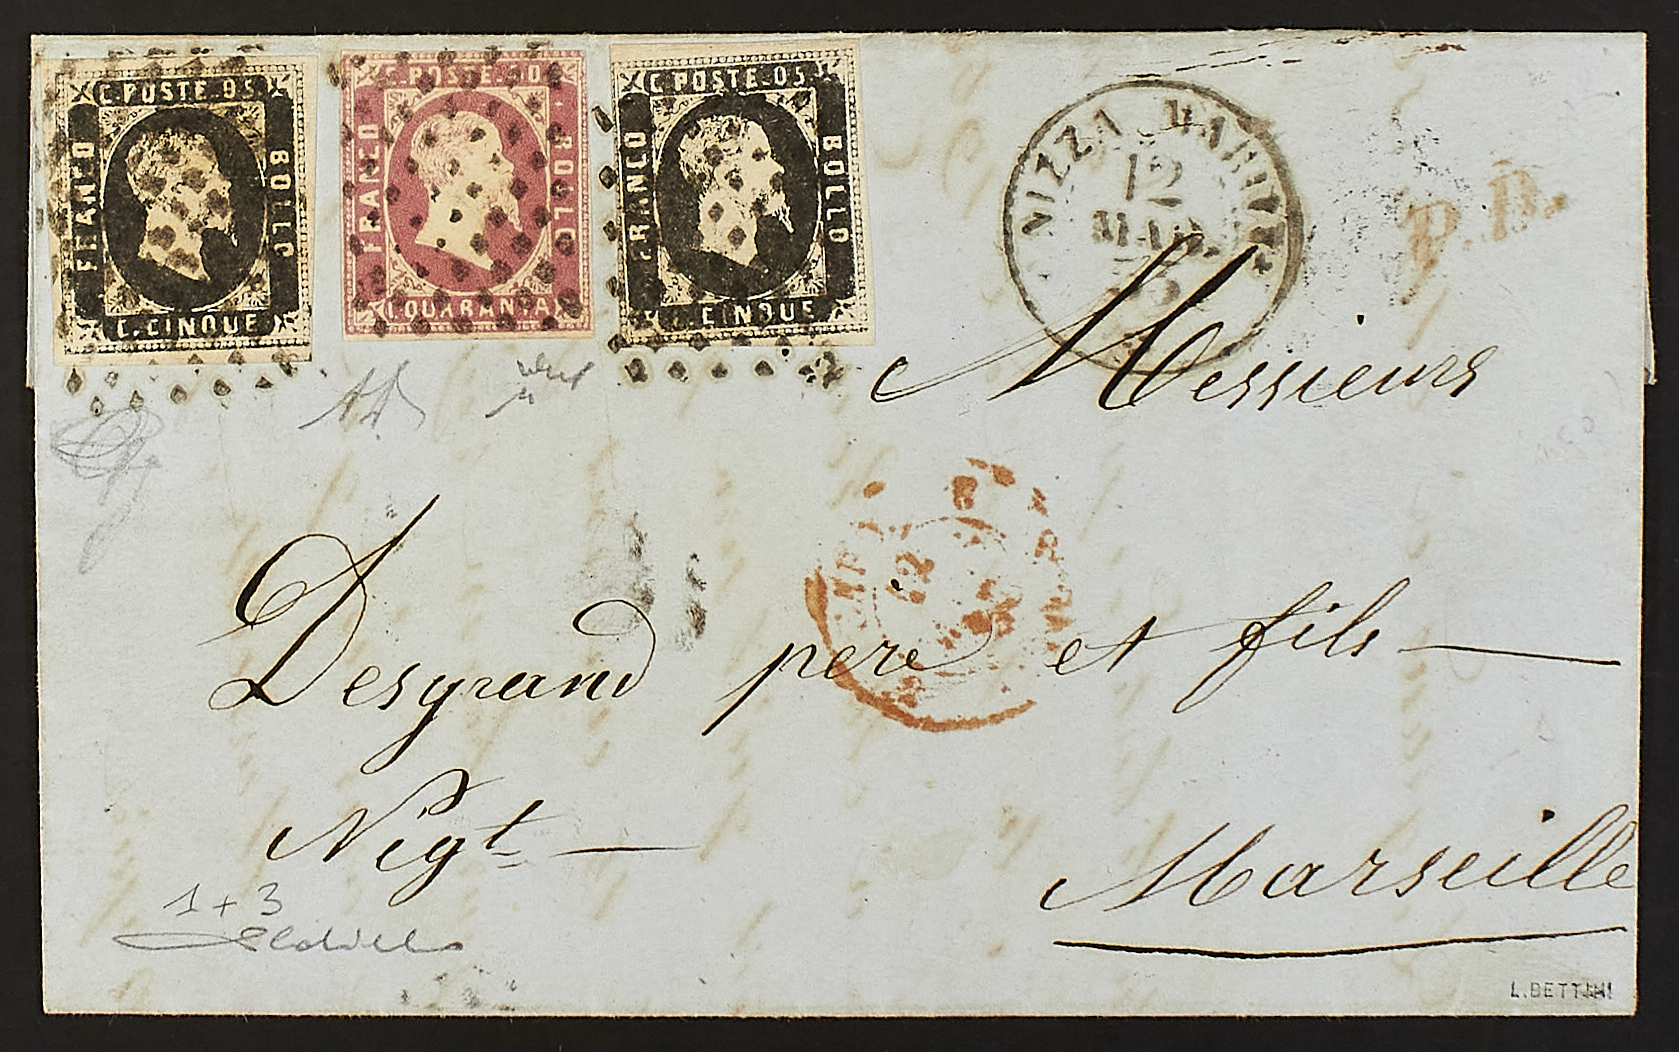 C. POSTE. 05
FRANCO
BOLLO
C. CINQUE
C. POSTE. 40
FRANCO
BOLLO
C. QUARANTA
C. POSTE. 05
FRANCO
BOLLO
C. CINQUE
NIZZA MARITT.
12
MAR.
P.D.
Messieurs
12
Desgrand pere et fils
Negt
Marseille
1 + 3
L. BETTINI